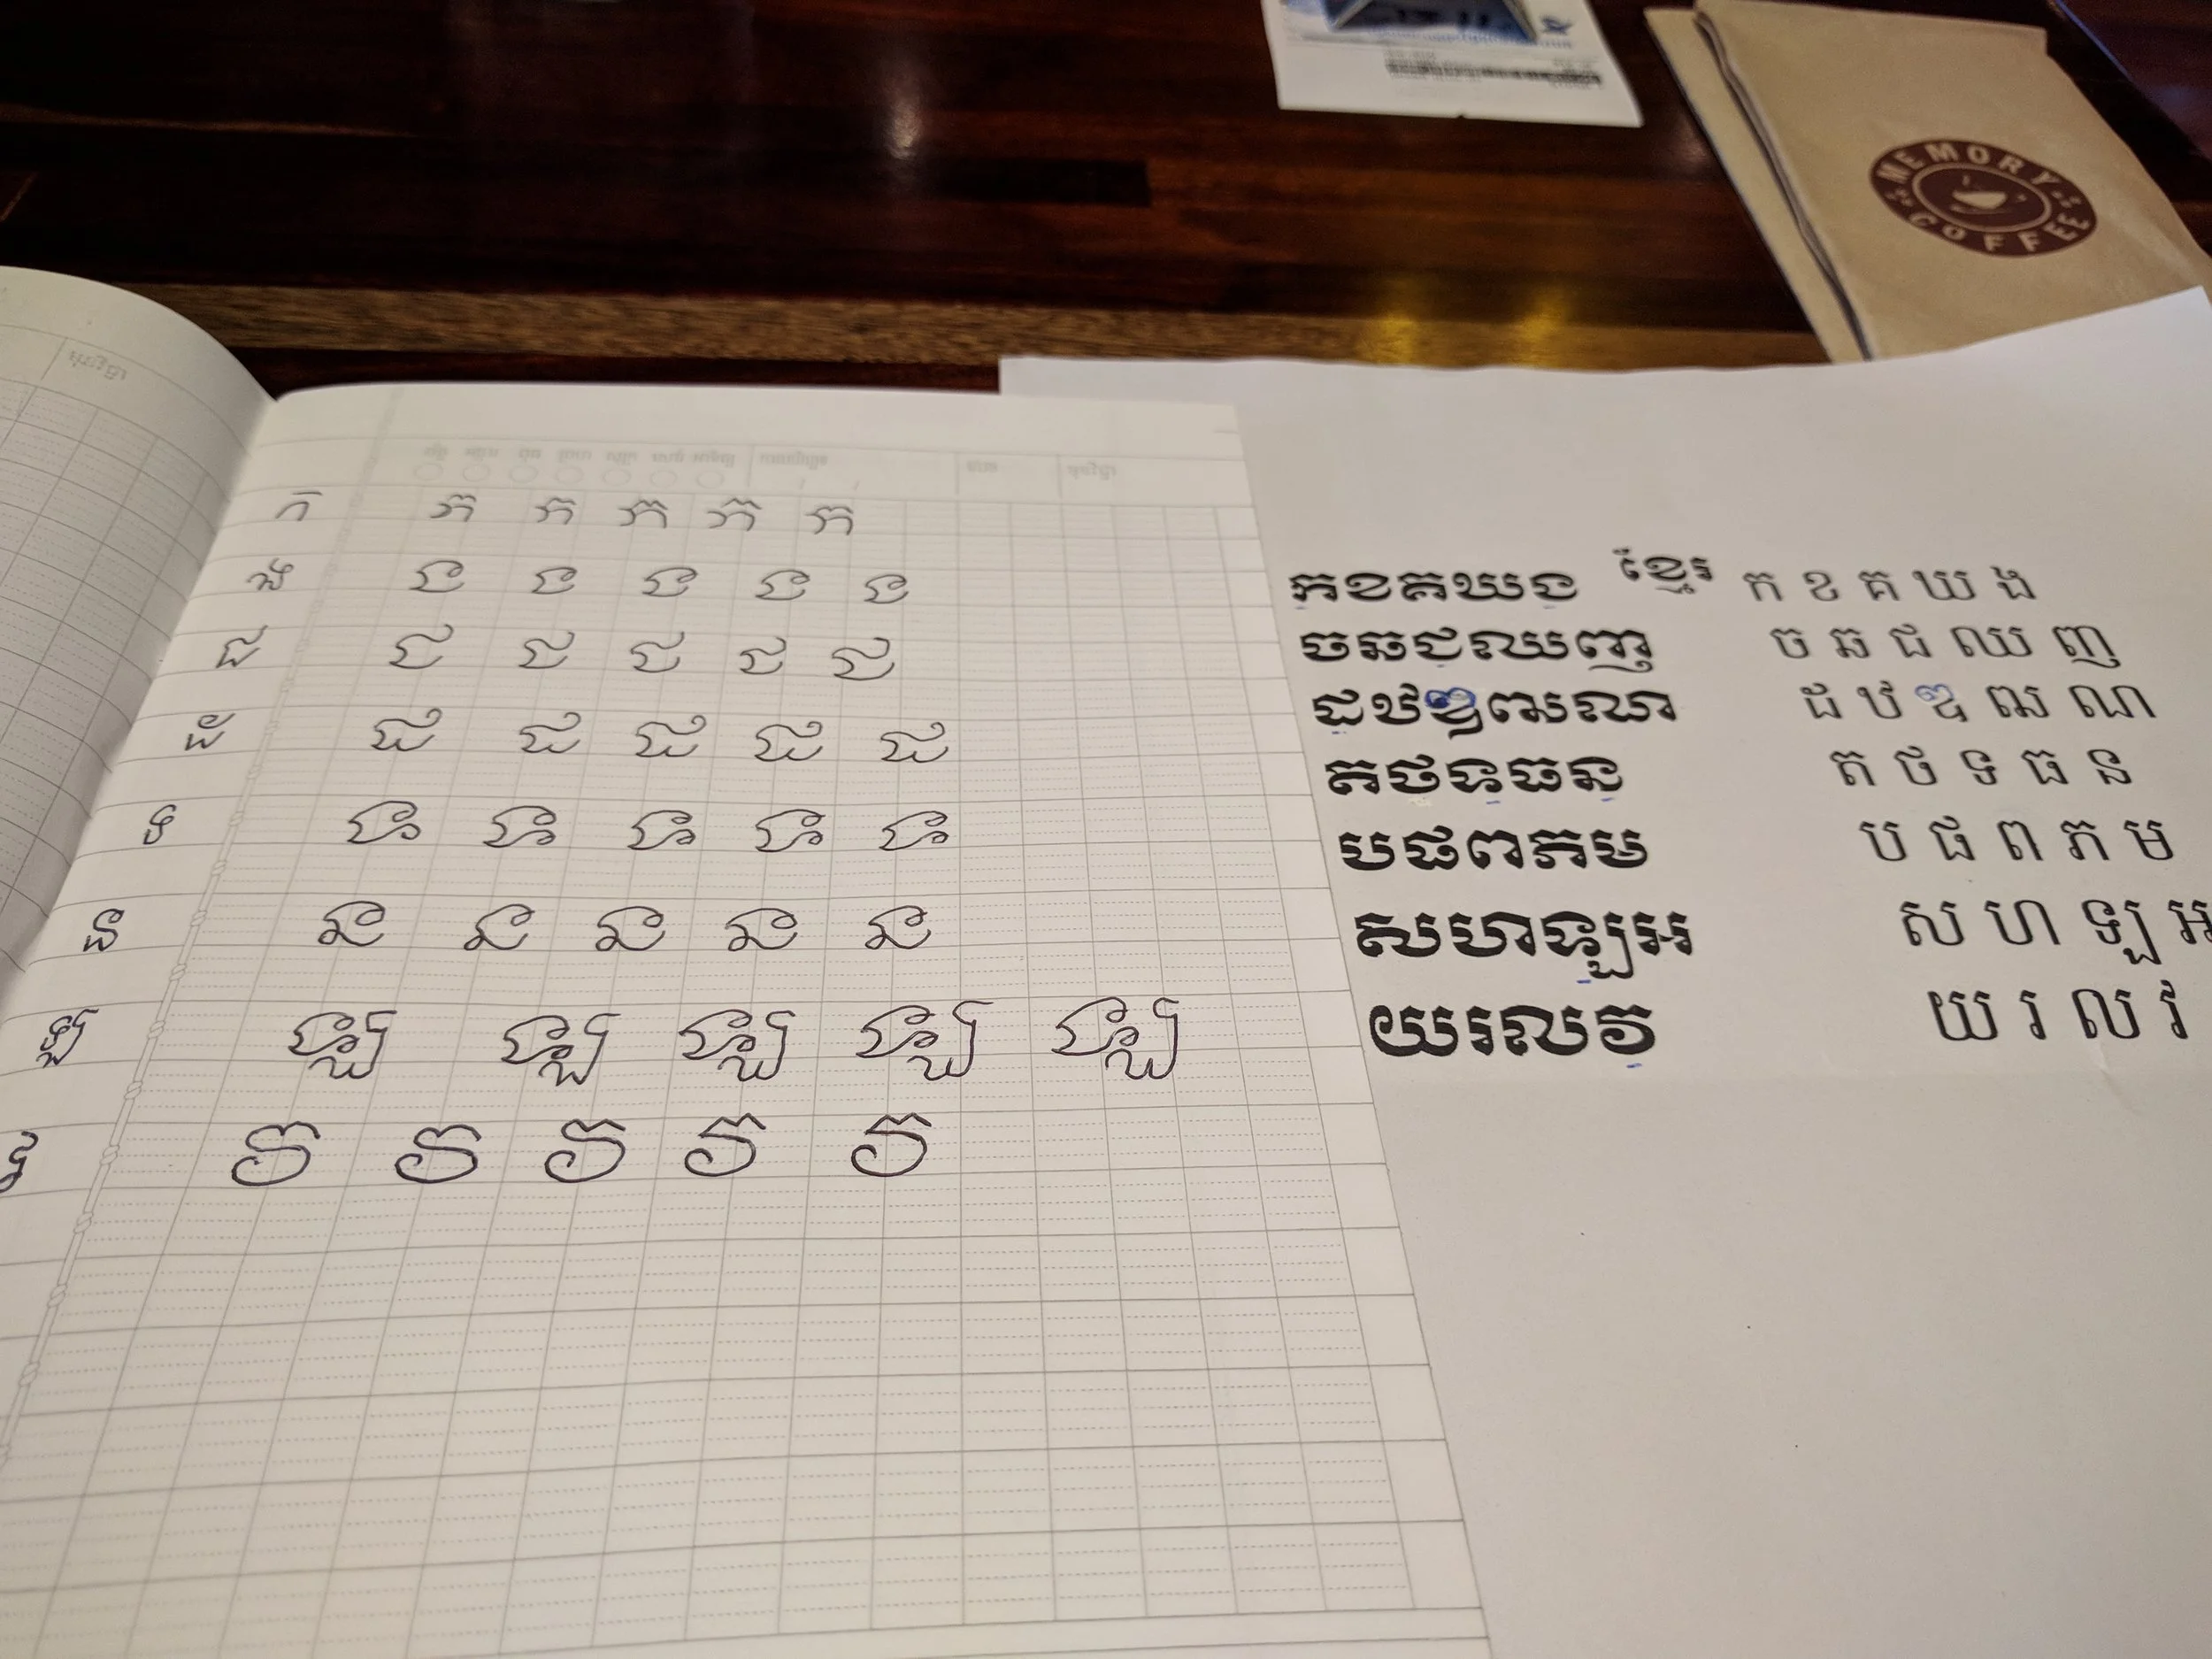 MEMORY COFFEE
ក ក ក ក ក ក
ង ង ង ង ង ង
ជ ជ ជ ជ ជ ជ
ដ ដ ដ ដ ដ ដ
ទ ទ ទ ទ ទ ទ
ន ន ន ន ន ន
ឡ ឡ ឡ ឡ ឡ ឡ
វ វ វ វ វ វ
កខគឃង ខ្មែរ ក ខ គ ឃ ង
ចឆជឈញ ច ឆ ជ ឈ ញ
ដឋឌឍណ ដ ឋ ឌ ឍ ណ
តថទធន ត ថ ទ ធ ន
បផពភម ប ផ ព ភ ម
សហឡអ ស ហ ឡ អ
យរលវ យ រ ល វ